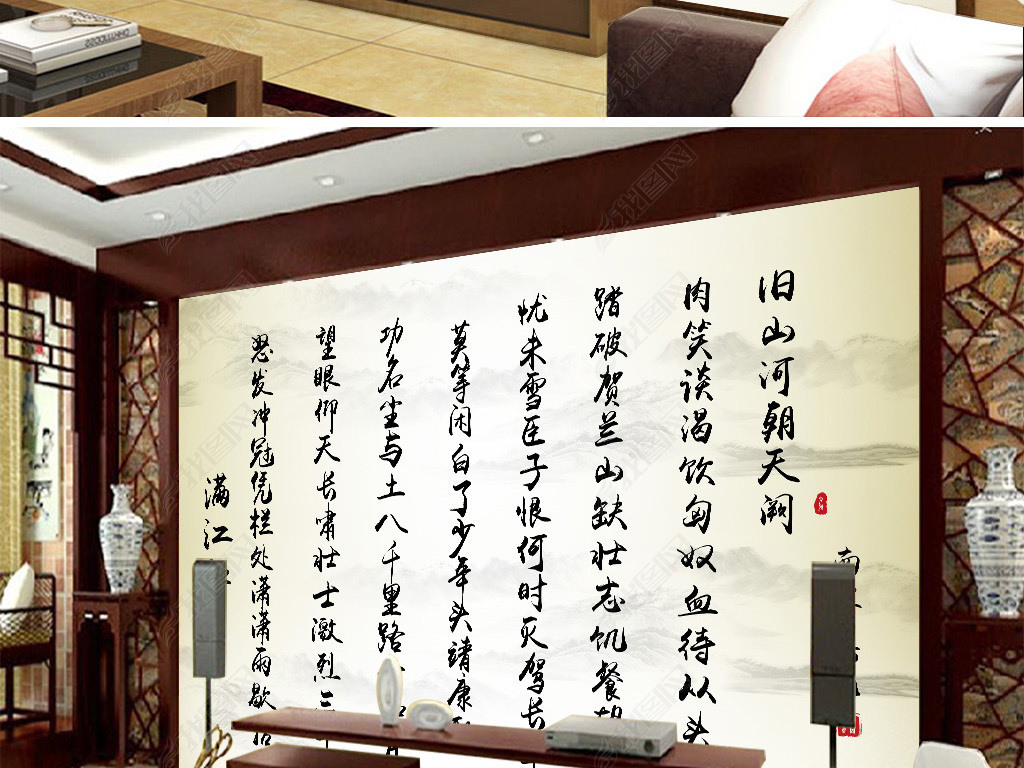 满江
怒发冲冠凭栏处潇潇雨歇
望眼仰天长啸壮士激烈三
功名尘与土八千里路
莫等闲白了少年头靖康
忧未雪臣子恨何时灭驾长
踏破贺兰山缺壮志饥餐
肉笑谈渴饮匈奴血待从头
旧山河朝天阙
南